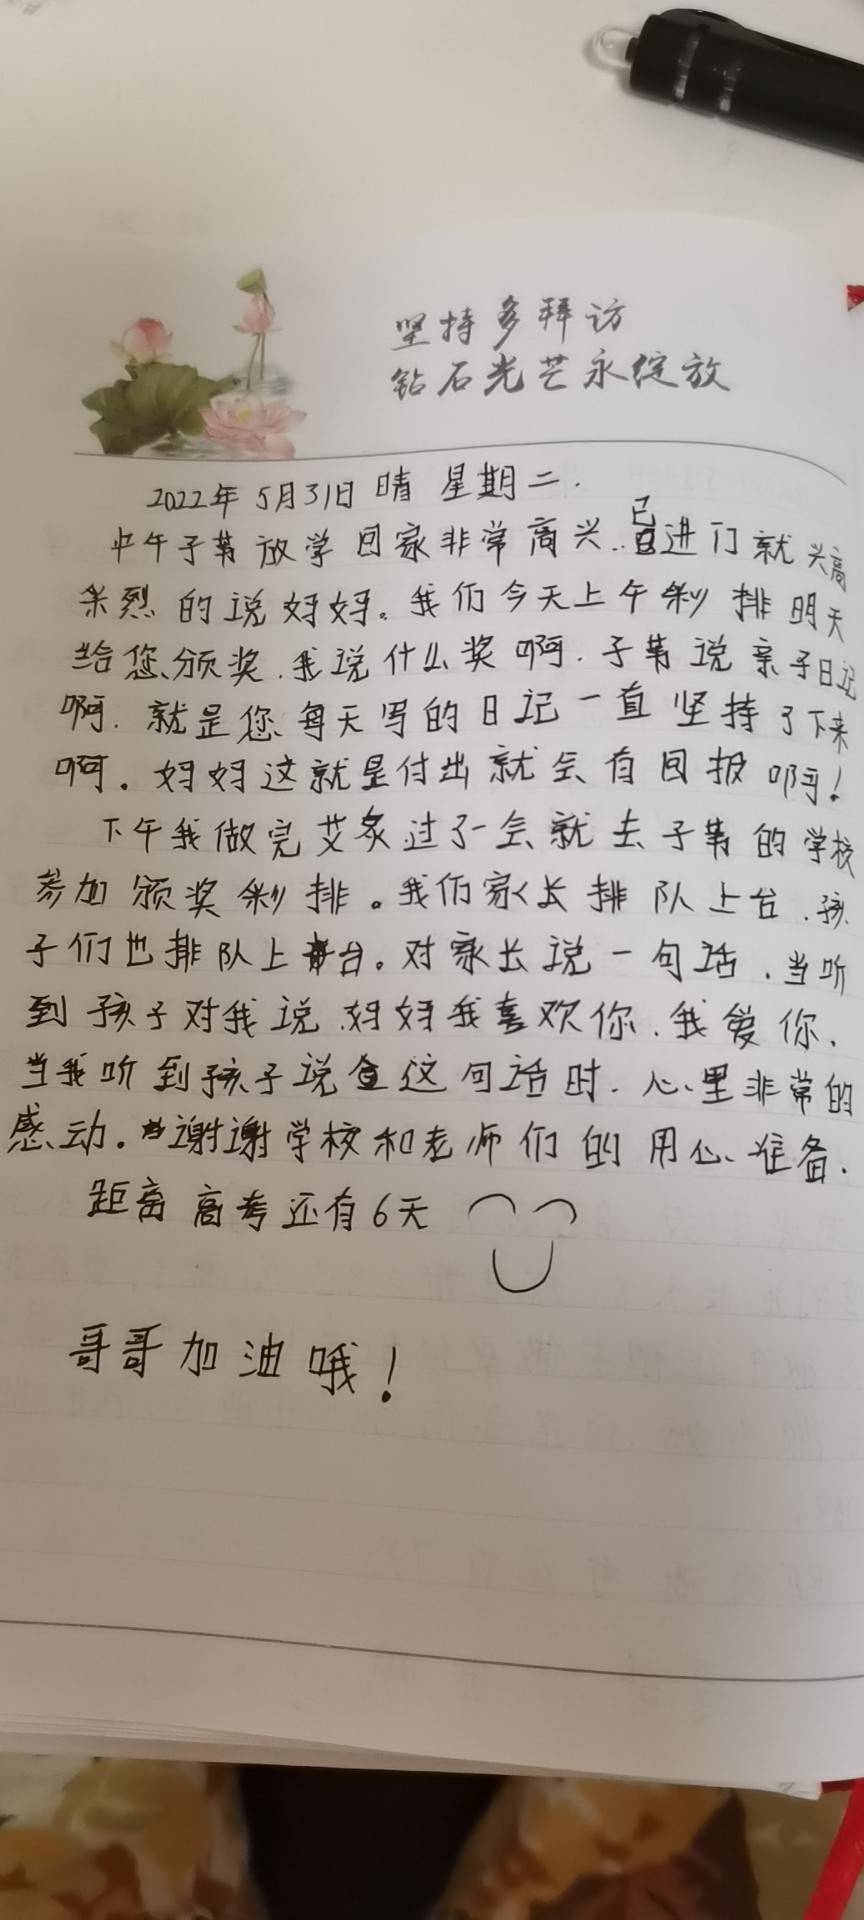 坚持多拜访
钻石光芒永绽放
2022年5月31日 晴 星期二.
中午子苇放学回家非常高兴..已进门就兴高
采烈的说妈妈。我们今天上午彩排明天
给您颁奖.我说什么奖啊.子苇说亲子日记
啊.就是您每天写的日记一直坚持了下来
啊。妈妈这就是付出就会有回报啊!
下午我做完艾灸过了一会就去子苇的学校
参加颁奖彩排。我们家长排队上台.孩
子们也排队上台。对家长说一句话.当听
到孩子对我说.妈妈我喜欢你.我爱你.
当我听到孩子说这句话时.心里非常的
感动。谢谢学校和老师们的用心准备.
距离高考还有6天
哥哥加油哦!